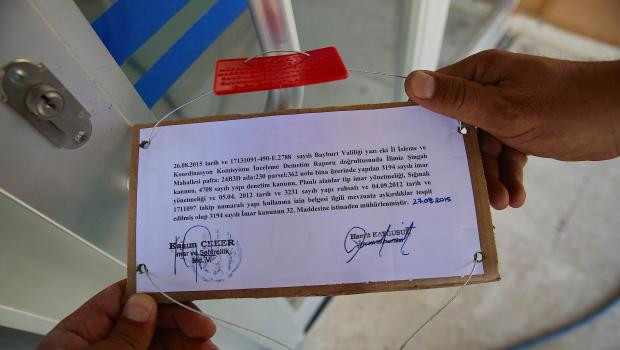 26.08.2015 tarih ve 17131091-490-E.2788 sayılı Bayburt Valiliği yazı eki İl İzleme ve
Koordinasyon Komisyonu İnceleme Denetim Raporu doğrultusunda İlimiz Şingah
Mahallesi pafta: 24B3D ada:230 parsel:362 nolu bina üzerinde yapılan 3194 sayılı imar
kanunu, 4708 sayılı yapı denetim kanunu, Planlı alanlar tip imar yönetmeliği, Sığınak
yönetmeliği ve 05.04. 2012 tarih ve 3231 sayılı yapı ruhsatı ve 04.09.2012 tarih ve
1711097 takip numaralı yapı kullanma izin belgesi ilgili mevzuata aykırılıklar tespit
edilmiş olup 3194 sayılı İmar kanunun 32. Maddesine istinaden mühürlenmiştir. 27.08.2015
Kasım ÇEKER
İmar ve Şehircilik
Md.V.
Hamit KAYGUSUZ